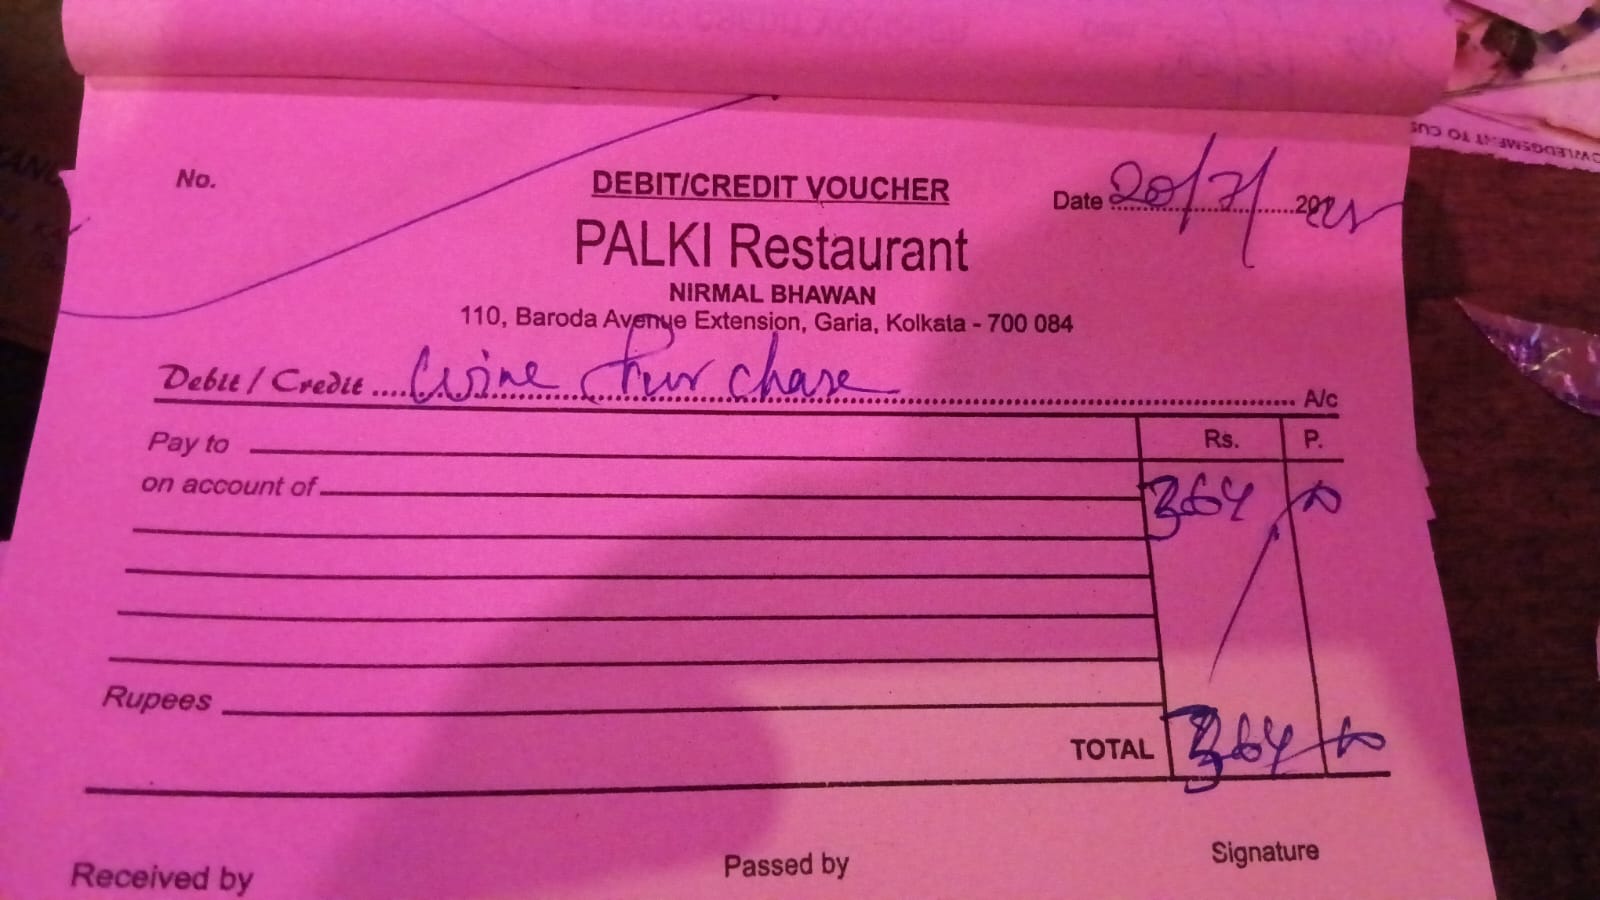 No.
DEBIT/CREDIT VOUCHER
Date 20/7/
PALKI Restaurant
NIRMAL BHAWAN
110, Baroda Avenue Extension, Garia, Kolkata - 700 084
Debit / Credit .... Wine Purchase A/c
Pay to Rs. P.
on account of 364
Rupees
TOTAL 364
Received by Passed by Signature